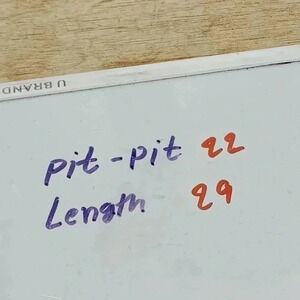 U BRAND
pit - pit 22
Length 29